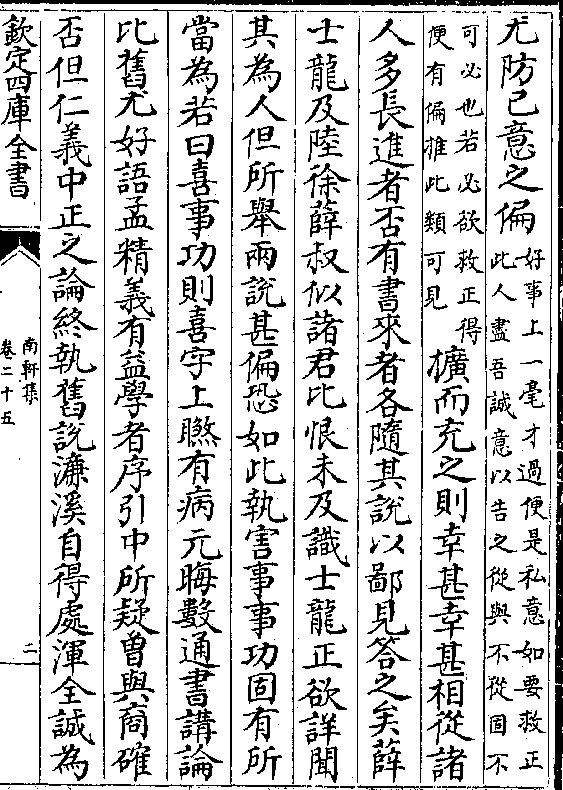 尤防己意之偏好事上一毫才過便是私意如要救正
此人盡吾誠意以告之從與不從固不
可必也若必欲救正得
便有偏推此類可見擴而充之則幸甚幸甚相從諸
人多長進者否有書來者各隨其說以鄙見答之矣薛
士龍及陸徐薛叔似諸君比恨未及識士龍正欲詳聞
其為人但所舉兩說甚偏恐如此執害事事功固有所
當為若曰喜事功則喜字上煞有病元晦數通書講論
比舊尤好語孟精義有益學者序引中所疑曾與商確
否但仁義中正之論終執舊說濓溪自得處渾全誠為
欽定四庫全書
南軒集
卷二十五
二